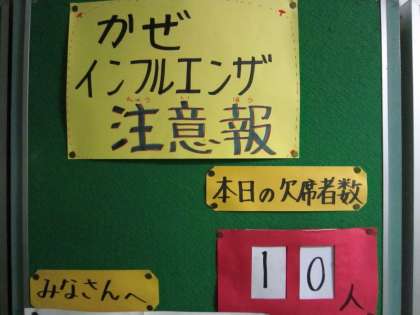 かぜ
インフルエンザ
ちゅう い ほう
注意報
本日の欠席者数
10人
みなさんへ